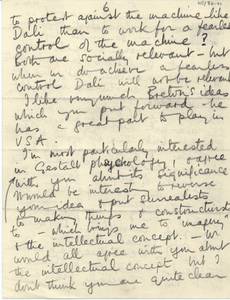 6
to protest against the machine like
Dali than to work for a fearless
control of the machine?
Both are socially relevant - but
when we do achieve a fearless
control Dali will not be relevant
I like very much Breton's ideas
which you put forward - he
has a great part to play in
USA
I'm most particularly interested
in Gestalt psychology, agree
with you about its significance
Would be interesting to reverse
your idea & put surrealists
to making things & constructivists
to - which brings me to "imagery"
& the intellectual concept - We
would all agree with you about
the intellectual concept but I
don't think you are quite clear